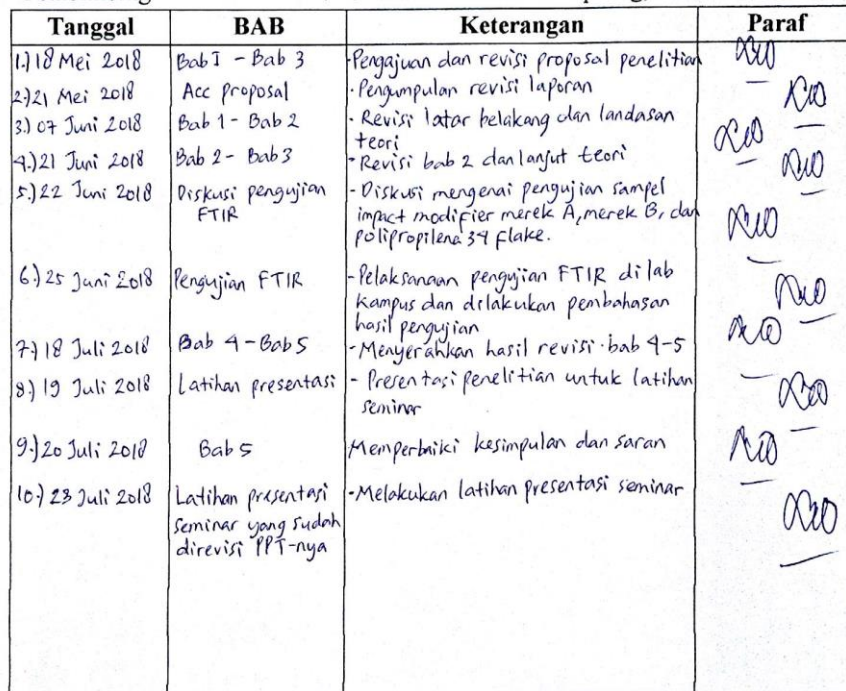 Tanggal BAB Keterangan Paraf
1.) 18 Mei 2018 Bab I - Bab 3 - Pengajuan dan revisi proposal penelitian
2.) 21 Mei 2018 Acc proposal - Pengumpulan revisi laporan
3.) 07 Juni 2018 Bab 1 - Bab 2 - Revisi latar belakang dan landasan
teori
4.) 21 Juni 2018 Bab 2 - Bab 3 - Revisi bab 2 dan lanjut teori
5.) 22 Juni 2018 Diskusi pengujian - Diskusi mengenai pengujian sampel
FTIR impact modifier merek A, merek B, dan
polipropilena 34 flake.
6.) 25 Juni 2018 Pengujian FTIR - Pelaksanaan pengujian FTIR di lab
kampus dan dilakukan pembahasan
hasil pengujian
7.) 18 Juli 2018 Bab 4 - Bab 5 - Menyerahkan hasil revisi bab 4-5
8.) 19 Juli 2018 Latihan presentasi - Presentasi penelitian untuk latihan
seminar
9.) 20 Juli 2018 Bab 5 Memperbaiki kesimpulan dan saran
10.) 23 Juli 2018 Latihan presentasi - Melakukan latihan presentasi seminar
seminar yang sudah
direvisi PPT-nya